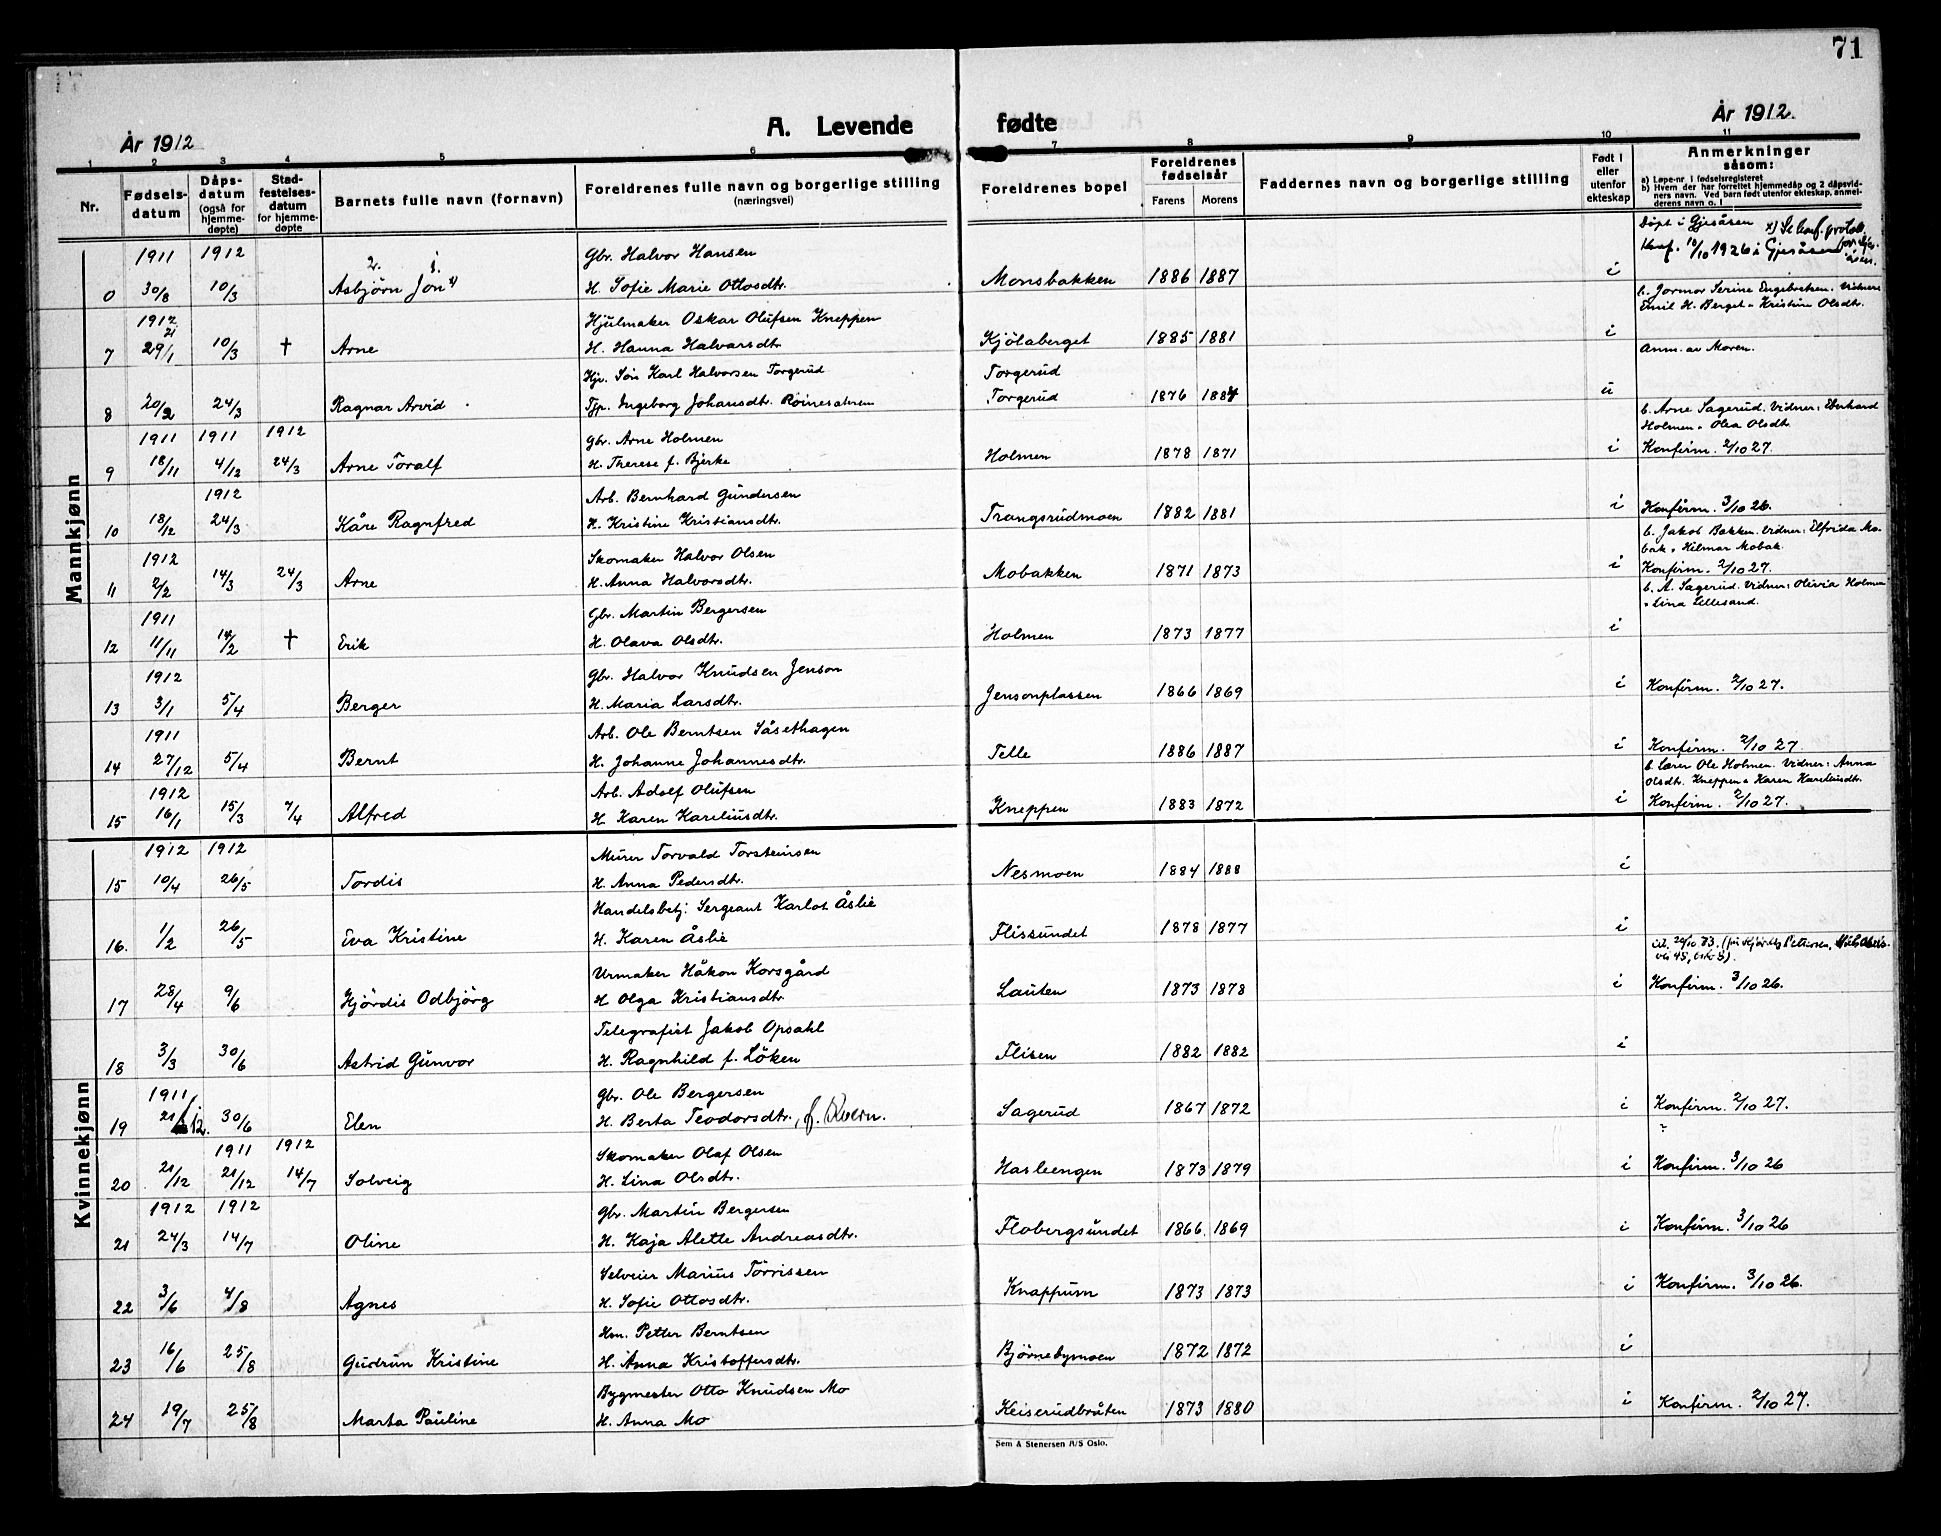 71
År 1912 A. Levende fødte År 1912.
1 2 3 4 5 6 7 8 9 10 11
Nr. Fødselsdatum Dåpsdatum (også for hjemmedøpte) Stadfestelsesdatum for hjemmedøpte Barnets fulle navn (fornavn) Foreldrenes fulle navn og borgerlige stilling (næringsvei) Foreldrenes bopel Foreldrenes fødselsår Farens Morens Faddernes navn og borgerlige stilling Født i eller utenfor ekteskap Anmerkninger såsom:
a) Løpe-nr i fødselsregisteret
b) Hvem der har forrettet hjemmedåp og 2 dåpsvidners navn. Ved barn født utenfor ekteskap, anmelderens navn o. l
Mannkjønn
1911 1912 2. 1. Gbr. Halvor Hansen Døpt i Gjesåsen
0 30/8 10/3 Asbjørn Jon H. Sofie Marie Ottosdtr. Monsbakken 1886 1887 i Konf. 10/10 1926 i Gjesåsen
1912 Hjulmaker Oskar Olufsen Kneppen b. Jormor Serine Engebretsen. Vidner: Emil H. Berget - Kristine Olsdtr.
7 29/1 10/3 † Arne H. Hanna Halvorsdtr. Kjølaberget 1885 1881 i
Hjv. Søn Karl Halvorsen Torgerud Torgerud Anm. av Moren.
8 20/2 24/3 Ragnar Arvid Tjp. Ingeborg Johansdtr. Torgerud 1876 1884 u
1911 1911 1912 Gbr. Arne Holmen b. Arne Sagerud. Vidner: Eberhard Holmen - Olea Olsdt.
9 18/11 4/12 24/3 Arne Toralf H. Therese f. Bjerke Holmen 1878 1871 i Konfirm. 2/10 27.
1912 Arb. Bernhard Gundersen
10 18/12 24/3 Kåre Ragnfred H. Kristine Kristiansdtr. Trangsrudmoen 1882 1881 i Konfirm. 3/10 26.
1912 Skomaker Halvor Olsen b. Jakob Bakken. Vidner: Elfrida Mobak - Hilmar Mobak.
11 2/2 14/3 24/3 Arne H. Anna Halvorsdtr. Mobakken 1871 1873 i Konfirm. 2/10 27.
1911 Gbr. Martin Bergersen b. A. Sagerud. Vidner: Olivia Holmen - Lina Lillesand.
12 11/11 14/2 † Erik H. Olava Olsdtr. Holmen 1873 1877 i
1912 Gbr. Halvor Knudsen Jenson
13 3/1 5/4 Berger H. Maria Larsdtr. Jensonplassen 1866 1869 i Konfirm. 2/10 27.
1911 Arb. Ole Berntsen Såsethagen
14 27/12 5/4 Bernt H. Johanne Johannesdtr. Telle 1886 1887 i Konfirm. 2/10 27.
1912 Arb. Adolf Olufsen b. Lærer Ole Holmen. Vidner: Anna Olsdtr. Kneppen - Karen Kareliusdtr.
15 16/1 15/3 7/4 Alfred H. Karen Kareliusdtr. Kneppen 1883 1872 i Konfirm. 2/10 27.
Kvinnekjønn
1912 1912 Murer Torvald Torsteinsen
15 10/4 26/5 Tordis H. Anna Pedersdtr. Nesmoen 1884 1888 i
Handelsbetj. Sergeant Karlot Åslie
16. 1/2 26/5 Eva Kristine H. Karen Åslie Flissundet 1878 1877 i
Urmaker Håkon Korsgård
17 28/4 9/6 Hjördis Odbjörg H. Olga Kristiansdtr. Lauten 1873 1878 i Konfirm. 3/10 26.
Telegrafist Jakob Opsahl
18 3/3 30/6 Astrid Gunvor H. Ragnhild f. Löken Flisen 1882 1882 i
1911 Gbr. Ole Bergersen
19 21/12. 30/6 Elen H. Berta Teodorsdtr., f. Kvern. Sagerud 1867 1872 i Konfirm. 2/10 27.
?
1911 1912 Skomaker Olaf Olsen
20 21/12 21/12 14/7 Solveig H. Lina Olsdtr. Hasleengen 1873 1879 i Konfirm. 3/10 26
1912 1912 Gbr. Martin Bergersen
21 24/3 14/7 Oline H. Kaja Alette Andreasdtr. Flobergsundet 1866. 1869 i Konfirm. 3/10 26
Selveier Marius Törrissen
22 3/6 4/8 Agnes H. Sofie Ottosdtr. Knappum 1873 1873 i Konfirm. 3/10 26.
Hm. Petter Berntsen
23 16/6 25/8 Gudrun Kristine H. Anna Kristoffersdtr. Bjørnebymoen 1872 1872 i
Bygmester Otto Knudsen Mo
24 19/7 25/8 Marta Pauline H. Anna Mo Keiserudbråten 1873 1880 i Konfirm. 2/10 27.
Sem & Stenersen A/S Oslo.